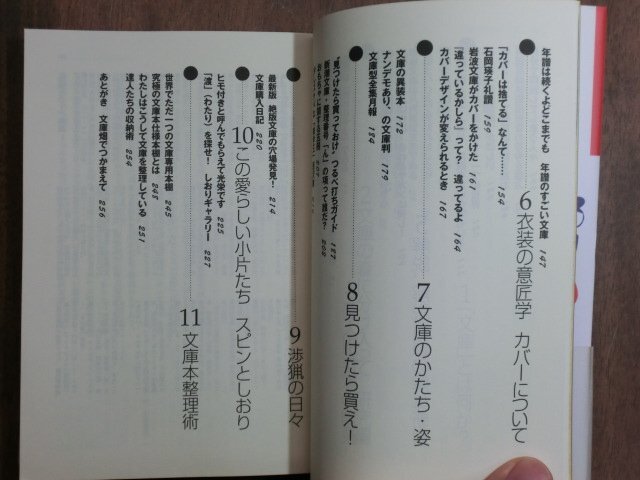 年譜は続くよどこまでも　年譜のすごい文庫　147
6 衣装の意匠学　カバーについて
「カバーは捨てる」なんて……　154
石岡瑛子礼讃　159
岩波文庫がカバーをかけた　161
「違っているかしら」って？　違ってるよ　164
カバーデザインが変えられるとき　167
7 文庫のかたち・姿
文庫の異装本　172
ナンデモあり、の文庫判　179
文庫型全集月報　184
8 見つけたら買え！
“見つけたら買っておけ”つるべ打ちガイド　187
新潮文庫・整理番号「ん」の項って誰だ？
9 渉猟の日々
最新版　絶版文庫の穴場発見！　214
文庫購入日記　220
10 この愛らしい小片たち　スピンとしおり
ヒモ付きと呼んでもらえて光栄です　225
「波」（わたり）を探せ！　しおりギャラリー　227
11 文庫本整理術
世界でただ一つの文庫専用本棚　245
究極の文庫本仕様本棚とは　245
わたしはこうして文庫を整理している　251
達人たちの収納術　254
あとがき　文庫畑でつかまえて　256